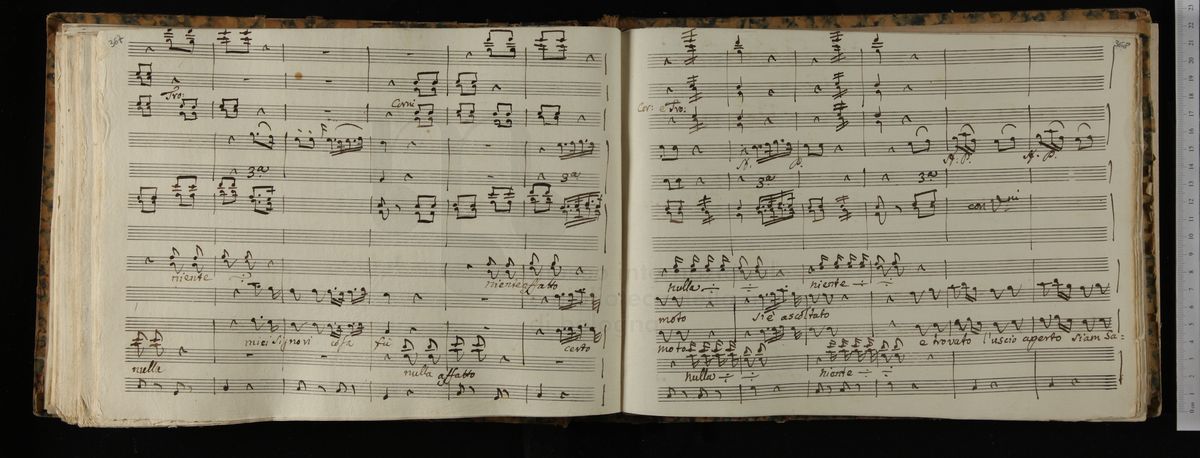 367
Tro:
Corni
3ª
3ª
niente
niente affatto
miei Signori cosa fù
certo
nulla
nulla affatto
368
Cor: e Tro.
3ª
3ª
con Vni
nulla
niente
moto
si è ascoltato
moto
e trovato l'uscio aperto siam Sa=
nulla
niente